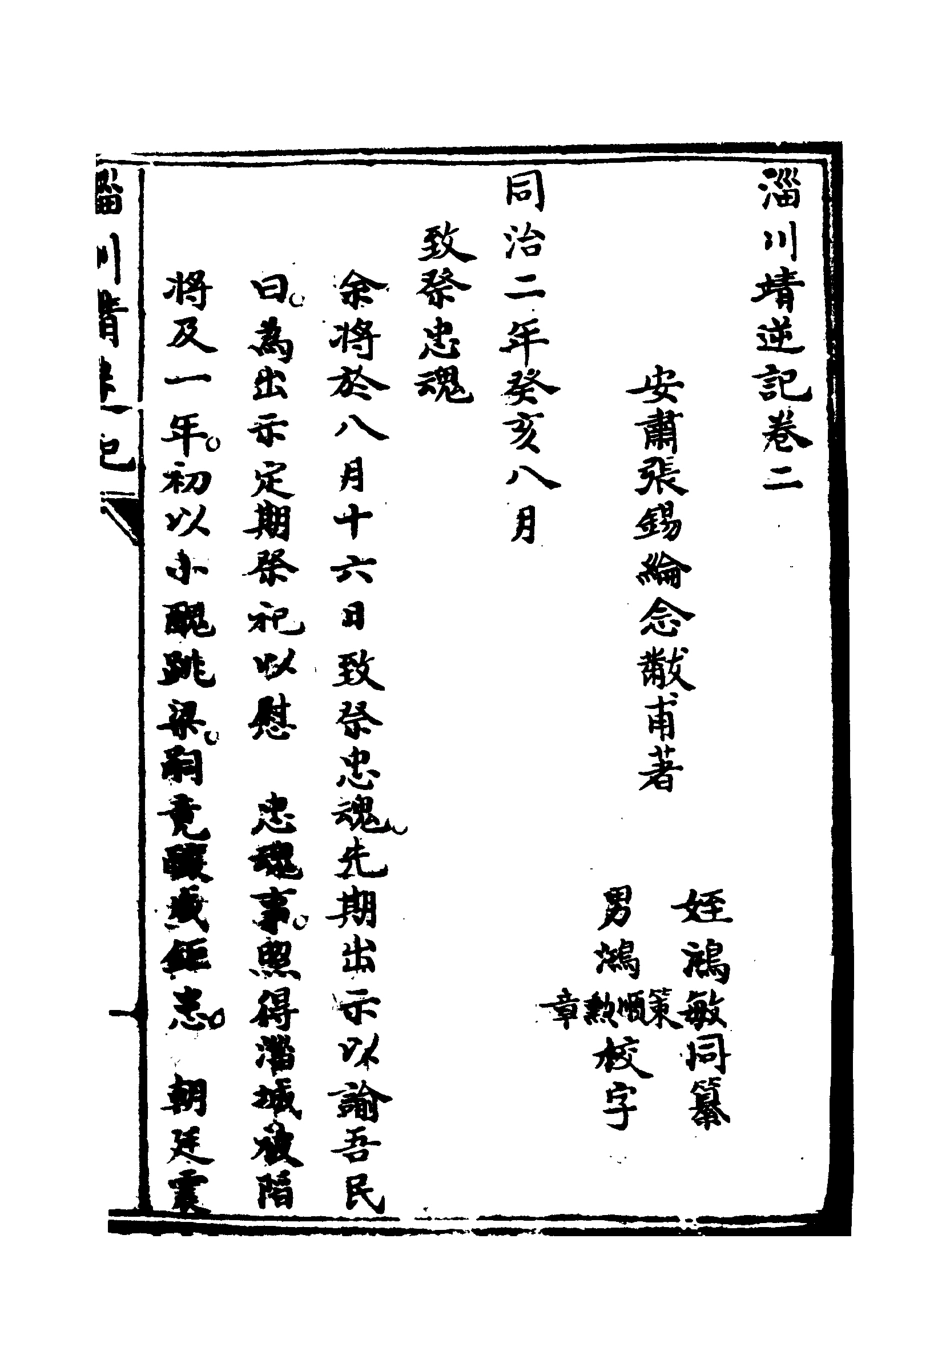 淄川靖逆記卷二
安肅張錫綸念黻甫著
姪鴻敏同纂
男鴻策順勲章校字
同治二年癸亥八月
致祭忠魂
余將於八月十六日致祭忠魂先期出示以諭吾民
曰為出示定期祭祀以慰 忠魂事照得淄城被陷
將及一年初以小醜跳梁嗣竟釀成鉅患 朝廷震
淄川靖逆記